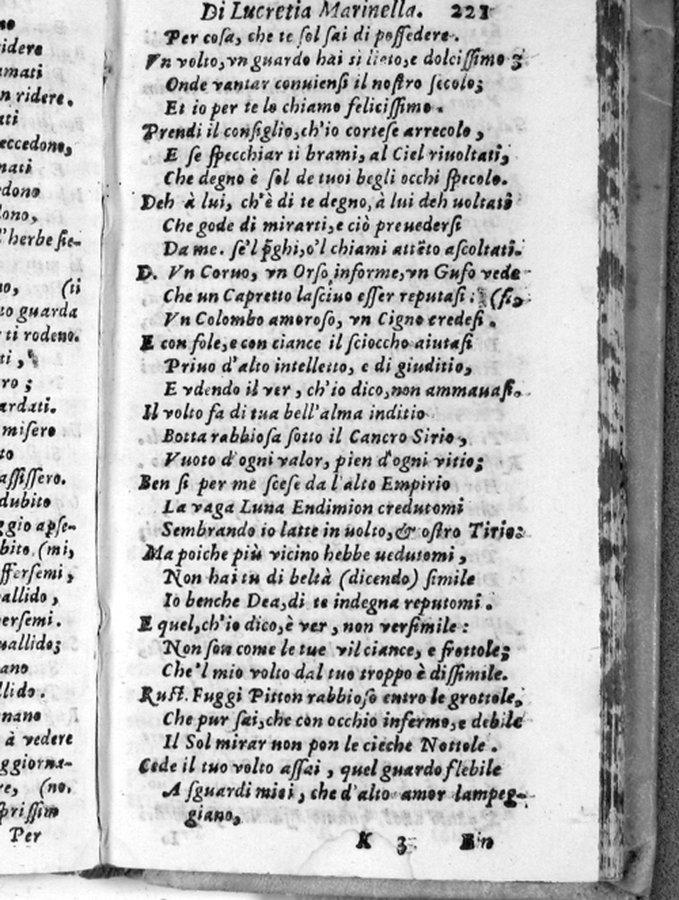 ridere
amati
n ridere.
ati
eccedono,
nati
edono
dono,
l'herbe sie-
no, (ti
to guarda
ti rodeno.
ti,
ro ;
ardati.
misero
to
assissero.
dubito
ggio apse-
bito (mi,
ffersemi,
allido,
persemi.
uallido;
ano
llido.
nano
à vedere
ggiorna-
re, (no.
prissim
Per
Di Lucretia Marinella. 221
Per cosa, che te sol sai di possedere.
Vn volto, vn guardo hai si lieto, e dolcissimo
Onde vantar conuiensi il nostro secolo;
Et io per te lo chiamo felicissimo.
Prendi il consiglio, ch'io cortese arrecolo,
E se specchiar ti brami, al Ciel riuoltati,
Che degno è sol de tuoi begli occhi specolo.
Deh à lui, ch'è di te degno, à lui deh uoltati
Che gode di mirarti, e ciò preuedersi
Da me. se'l p̃ghi, o'l chiami attẽto ascoltati.
D. Vn Coruo, vn Orso informe, vn Gufo vede-
Che un Capretto lasciuo esser reputasi; (si,
Vn Colombo amoroso, vn Cigno credesi.
E con fole, e con ciance il sciocco aiutasi
Priuo d'alto intelletto, e di giuditio,
E vdendo il ver, ch'io dico, non ammauasi.
Il volto fa di tua bell'alma inditio
Botta rabbiosa sotto il Cancro Sirio,
Vuoto d'ogni valor, pien d'ogni vitio;
Ben si per me scese da l'alto Empirio
La vaga Luna Endimion credutomi
Sembrando io latte in uolto, & ostro Tirio:
Ma poiche più vicino hebbe uedutomi,
Non hai tu di beltà (dicendo) simile
Io benche Dea, di te indegna reputomi.
E quel, ch'io dico, è ver, non versimile:
Non son come le tue vil ciance, e frottole;
Che'l mio volto dal tuo troppo è dissimile.
Rust. Fuggi Pitton rabbioso entro le grottole,
Che pur sai, che con occhio infermo, e debile
Il Sol mirar non pon le cieche Nottole.
Cede il tuo volto assai, quel guardo flebile
A sguardi miei, che d'alto amor lampeg-
giano,
K 3